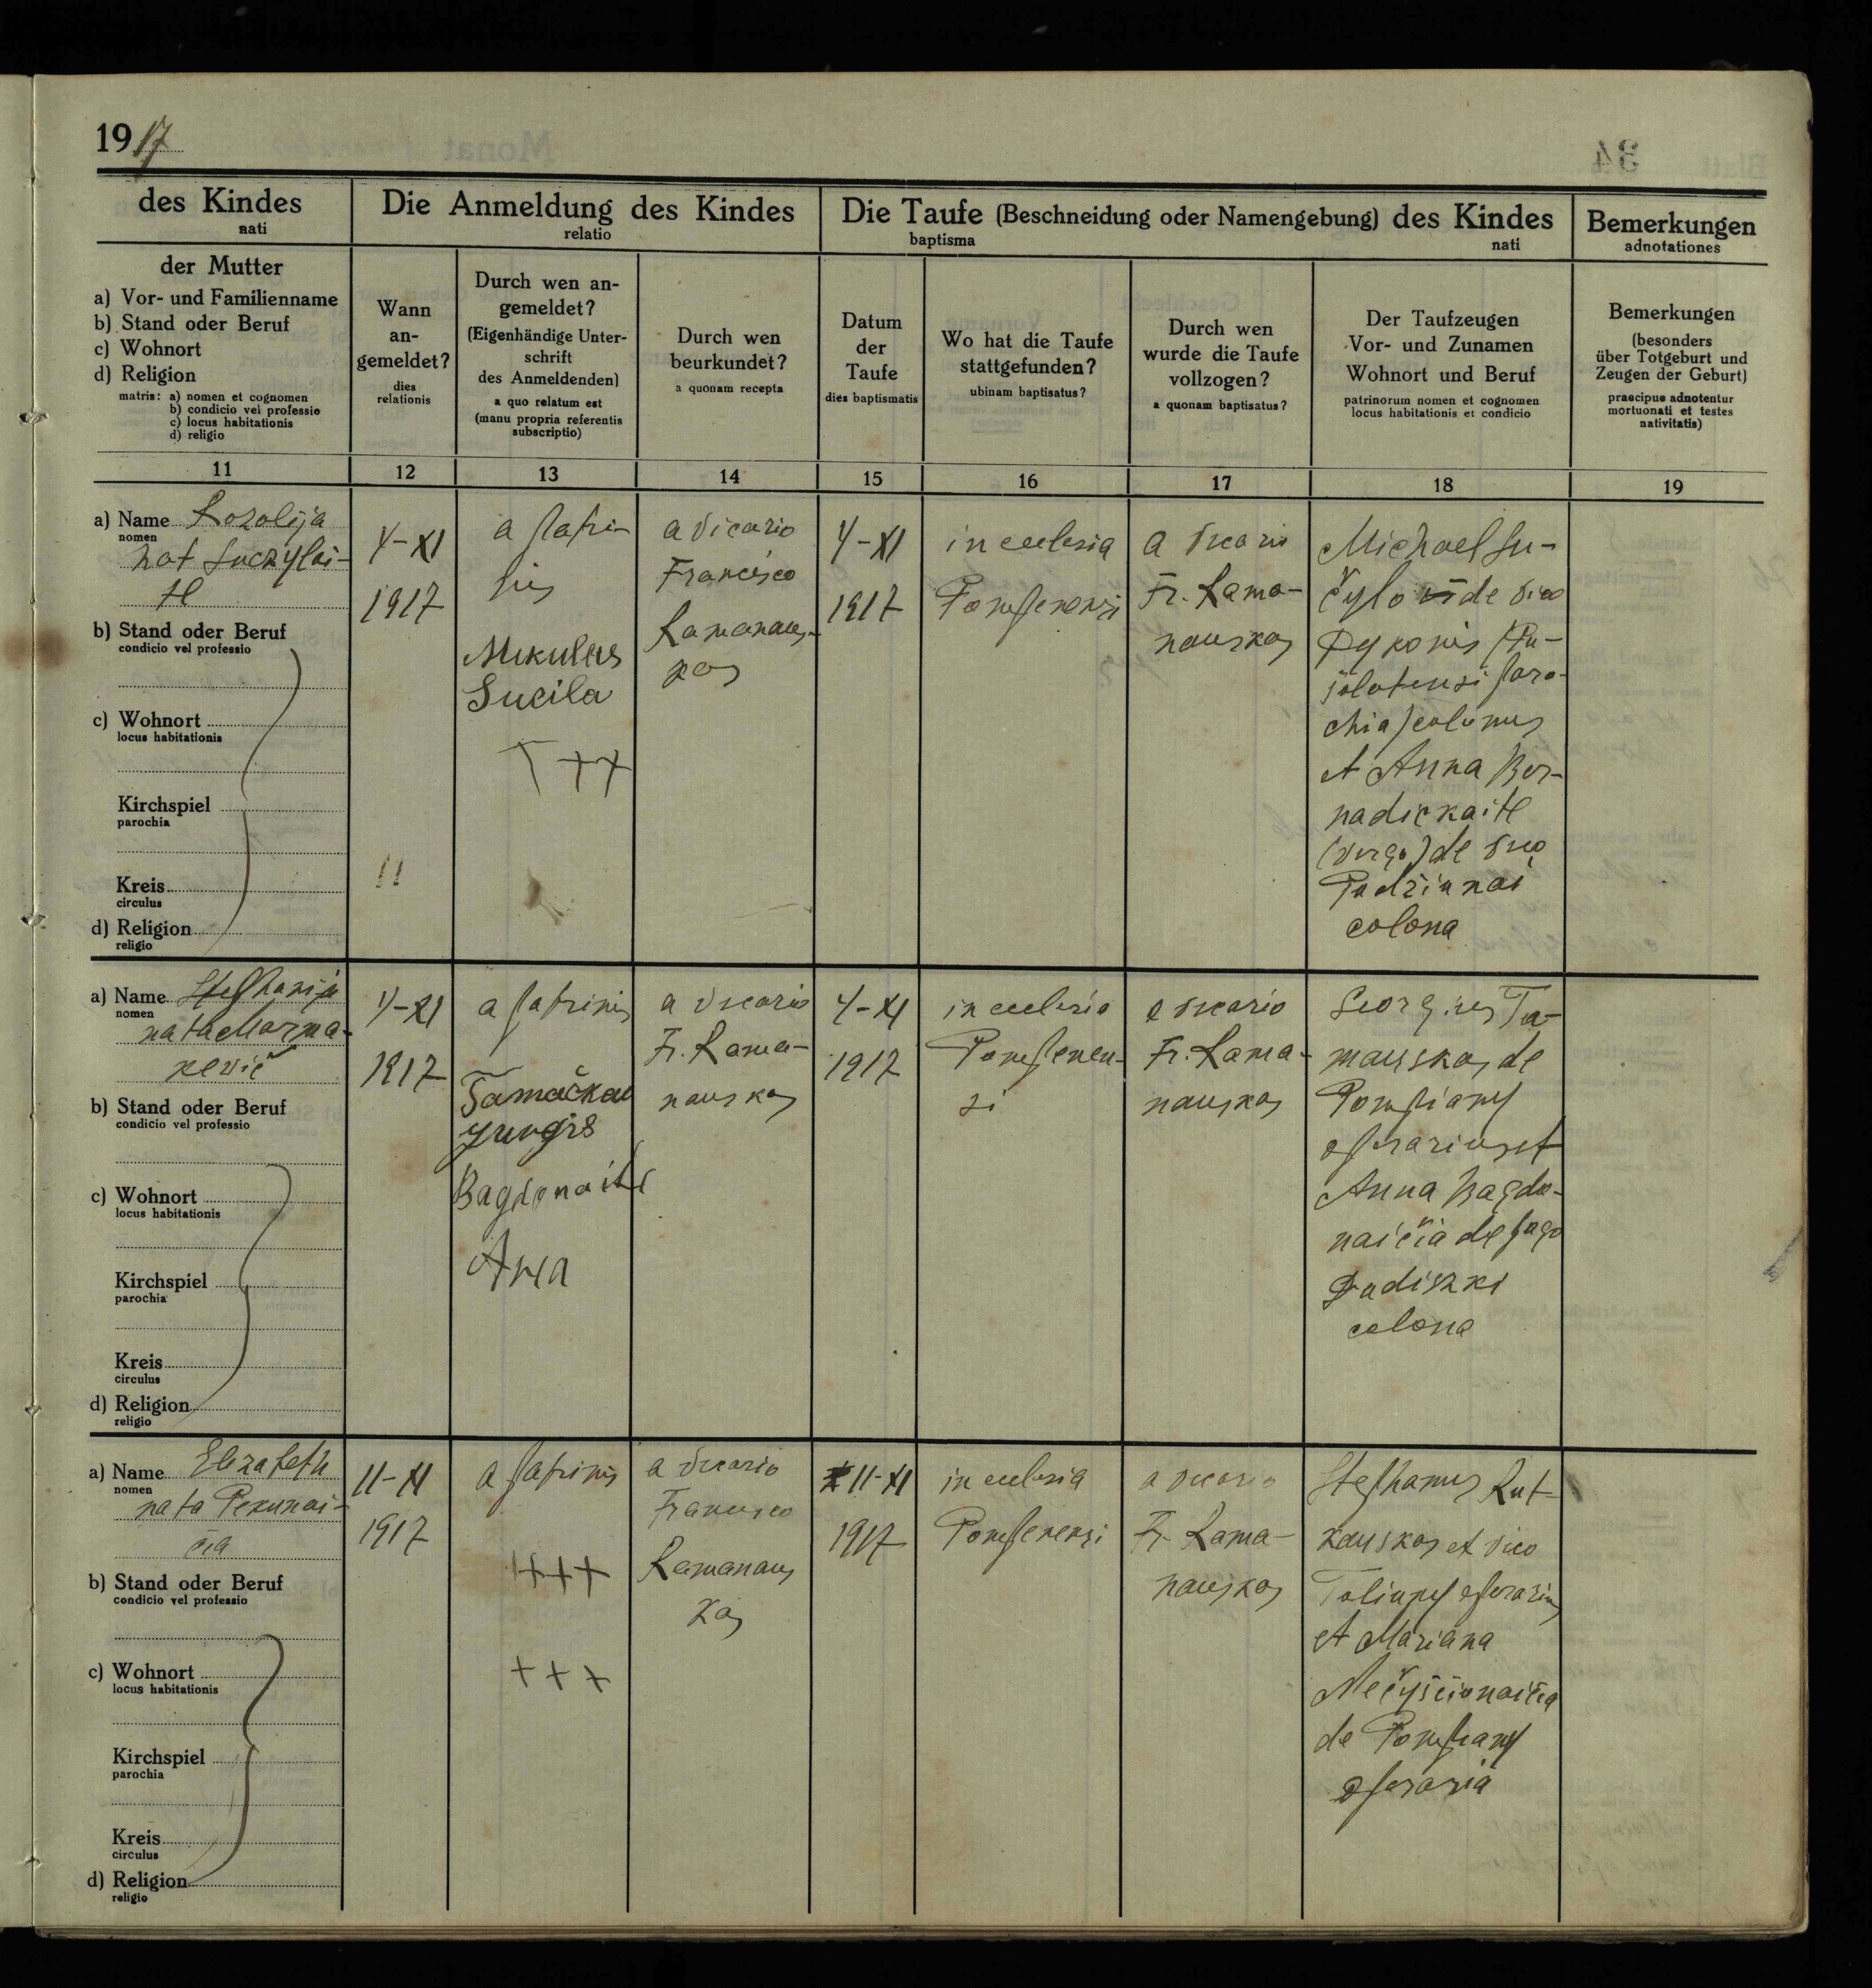 1917
des Kindes
nati
Die Anmeldung des Kindes
relatio
Die Taufe (Beschneidung oder Namengebung) des Kindes
baptisma nati
Bemerkungen
adnotationes
der Mutter
a) Vor- und Familienname
b) Stand oder Beruf
c) Wohnort
d) Religion
matris: a) nomen et cognomen
b) condicio vel professio
c) locus habitationis
d) religio
Wann
an-
gemeldet?
dies
relationis
Durch wen an-
gemeldet?
(Eigenhändige Unter-
schrift
des Anmeldenden)
a quo relatum est
(manu propria referentis
subscriptio)
Durch wen
beurkundet?
a quonam recepta
Datum
der
Taufe
dies baptismatis
Wo hat die Taufe
stattgefunden?
ubinam baptisatus?
Durch wen
wurde die Taufe
vollzogen?
a quonam baptisatus?
Der Taufzeugen
Vor- und Zunamen
Wohnort und Beruf
patrinorum nomen et cognomen
locus habitationis et condicio
Bemerkungen
(besonders
über Totgeburt und
Zeugen der Geburt)
praecipue adnotentur
mortuonati et testes
nativitatis)
11 12 13 14 15 16 17 18 19
a) Name Rozolija
nomen
nat Suczylai-
te
b) Stand oder Beruf
condicio vel professio
c) Wohnort
locus habitationis
Kirchspiel
parochia
Kreis
circulus
d) Religion
religio
4-XI
1917
a patri-
nis
Mikulas
Sucila
+++
a vicario
Francisco
Ramanaus-
kas
4-XI
1917
in eclesia
Pompenensi
a vicario
Fr. Rama-
nauskas
Michael Su-
čylo de vico
Dykonis (Pu-
šolotensi paro-
chia) colonus
et Anna Ber-
nadickaite
(virgo) de vico
Padžiunai
colona
a) Name Stephanija
nomen
nata Marma-
kevič
b) Stand oder Beruf
condicio vel professio
c) Wohnort
locus habitationis
Kirchspiel
parochia
Kreis
circulus
d) Religion
religio
4-XI
1917
a patrinis
Tamačkau
yurgis
Bagdonaite
Ana
a vicario
Fr. Rama-
nauskas
4-XI
1917
in eclesia
Pompenen-
si
a vicario
Fr. Rama-
nauskas
Georgius Ta-
mauskas de
Pompiany
operarius et
Anna Bagdo-
naičia de pago
Dudiszki
colona
a) Name Elizabeth
nomen
nata Pekunai-
čia
b) Stand oder Beruf
condicio vel professio
c) Wohnort
locus habitationis
Kirchspiel
parochia
Kreis
circulus
d) Religion
religio
11-XI
1917
a patrinis
+++
+++
a vicario
Francisco
Ramanaus
kas
11-XI
1917
in eclesia
Pompenensi
a vicario
Fr. Rama-
nauskas
Stephanus Rut-
kauskas et vico
Toliuny operarius
et Mariana
Nečyščionaičia
de Pompiany
operaria